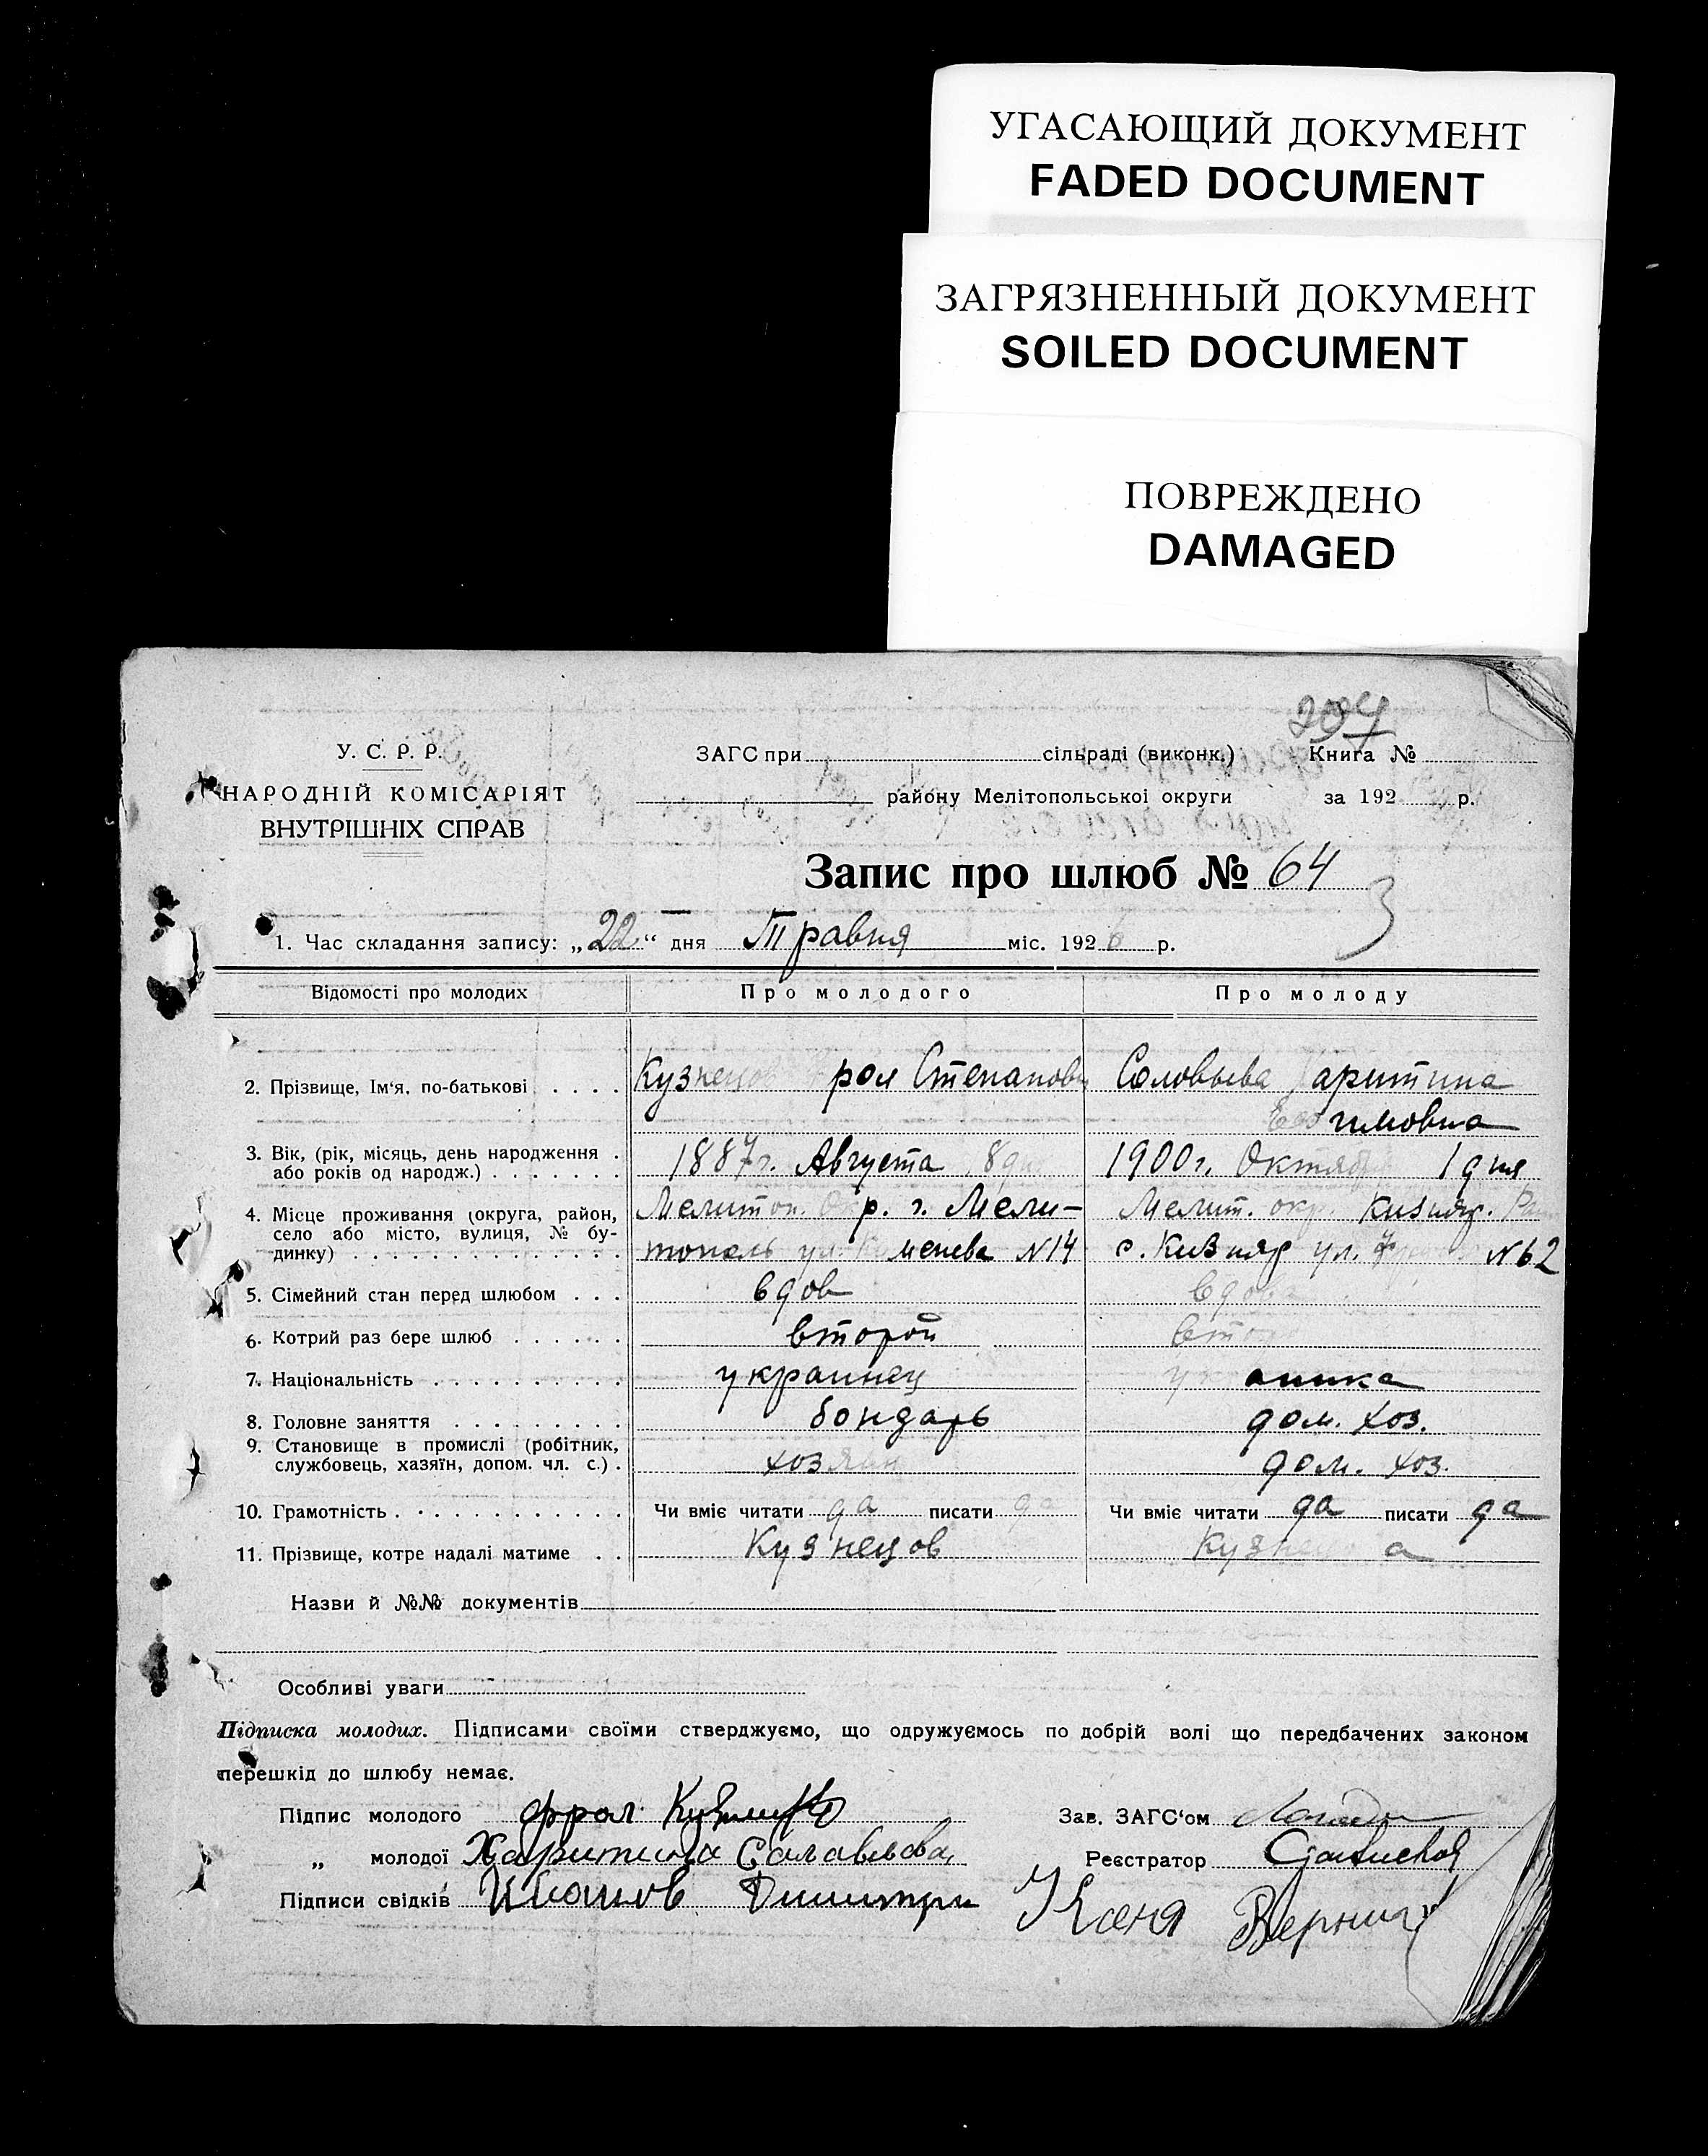 УГАСАЮЩИЙ ДОКУМЕНТ
FADED DOCUMENT
ЗАГРЯЗНЕННЫЙ ДОКУМЕНТ
SOILED DOCUMENT
ПОВРЕЖДЕНО
DAMAGED
У. С. Р. Р.
НАРОДНІЙ КОМІСАРІЯТ
ВНУТРІШНІХ СПРАВ
ЗАГС при сільраді (виконк.) Книга №
району Мелітопольської округи за 192 р.
Запис про шлюб № 64
1. Час складання запису: „22“ дня Травня міс. 192 р.
Відомості про молодих Про молодого Про молоду
2. Прізвище, Ім‘я, по-батькові Кузнецов Фрол Степанович Соловьева Харитина
3. Вік, (рік, місяць, день народження або років од народж.) 1887 г. Августа 18 дня 1900 г. Октября 1 дня
4. Місце проживання (округа, район, Мелитоп. Окр. г. Мели- Мелит. окр. Кизияр. Рай
село або місто, вулиця, № бу- тополь ул. N 14 с. Кизияр ул. N 62
динку)
5. Сімейний стан перед шлюбом вдов вдова
6. Котрий раз бере шлюб второй
7. Національність украинец
8. Головне заняття бондарь дом. хоз.
9. Становище в промислі (робітник,
службовець, хазяїн, допом. чл. с.) хозяин дом. хоз.
10. Грамотність Чи вміє читати да писати да Чи вміє читати да писати да
11. Прізвище, котре надалі матиме Кузнецов Кузнецова
Назви й №№ документів
Особливі уваги
Підписка молодих. Підписами своїми стверджуємо, що одружуємось по добрій волі що передбачених законом
перешкід до шлюбу немає.
Підпис молодого Фрол Зав. ЗАГС‘ом
„ молодої Харитина Реєстратор
Підписи свідків Иванов Дмитри